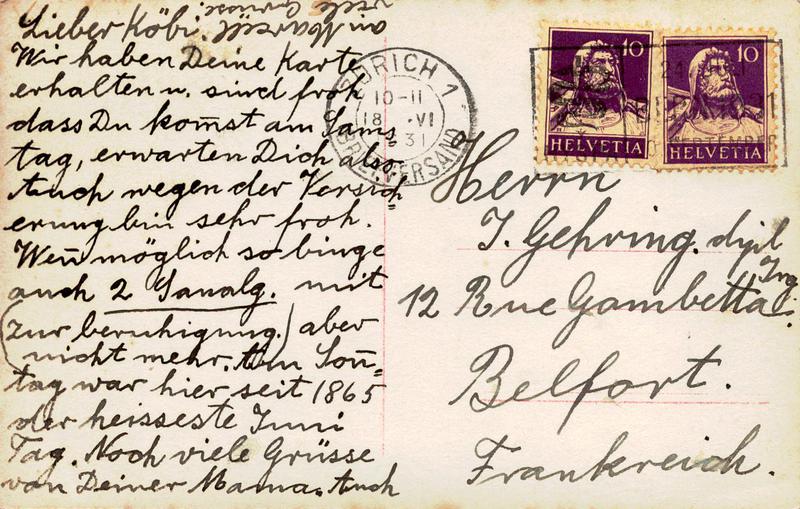 Lieber Köbi.
Wir haben Deine Karte
erhalten u. sind froh
dass Du kom̄st am Sams=
tag, erwarten Dich also.
Auch wegen der Versich=
erung bin sehr froh.
Wen̄ möglich so binge
auch 2 Sanalg. mit
(zur beruhigung.) aber
nicht mehr. Am Son̄=
tag war hier seit 1865
der heisseste Juni
Tag. Noch viele Grüsse
von Deiner Mama. Auch
an Marcel
viele Grüsse
ZÜRICH 1
10-11
18 VI
31
BRIEFVERSAND
10
HELVETIA
10
HELVETIA
Herrn
J. Gehring. dipl
Ing.
12 Rue Gambetta
Belfort.
Frankreich.